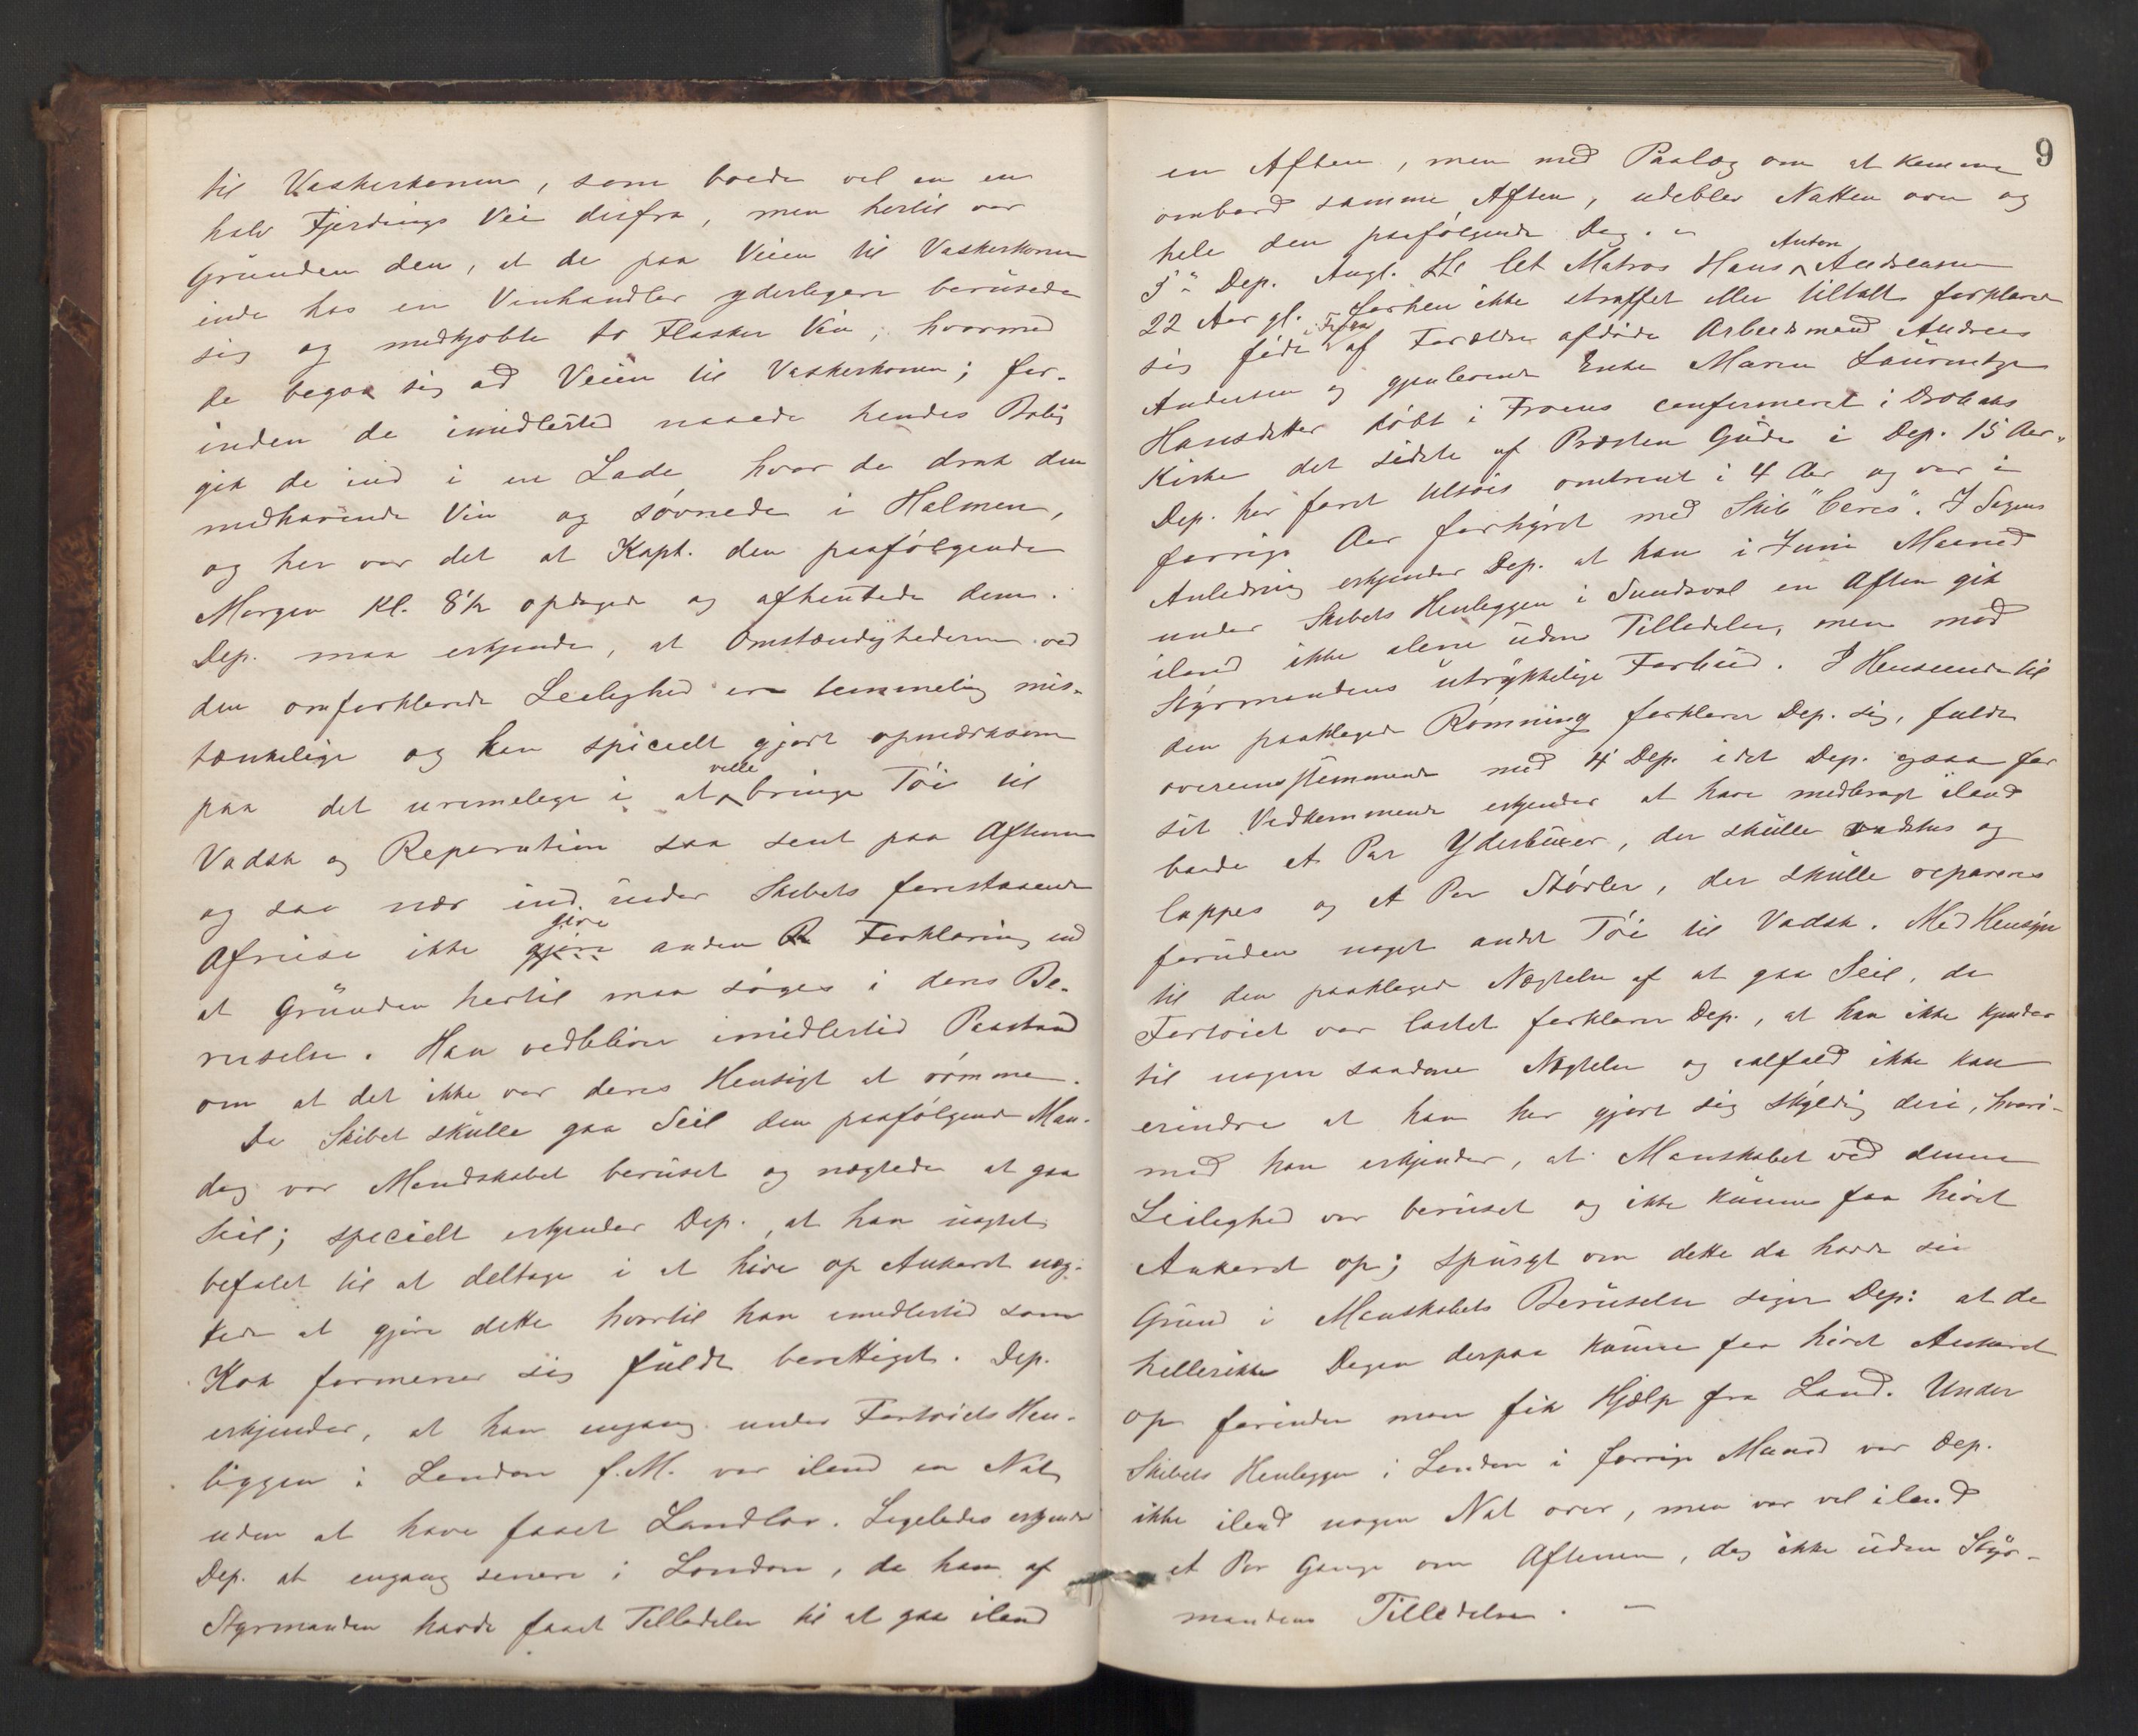 til Vaskerkonen, som boede vel en en
halv Fjerdings Vei derfra, men hertil var
Grunden den, at de paa Veien til Vaskerkonen
inde hos en Vinhandler yderligere berusede
sig og medkjøbte to Flasker Vin, hvormed
de begav sig ad Veien til Vaskerkonen; for-
inden de imidlertid naaede hendes Bolig
gik de ind i en Lade hvor de drak den
medhavende Vin og søvnede i Halmen,
og her var det at Kapt. den paafølgende
Morgen Kl. 8½ opdaged og afhentede dem.
Dep. maa erkjende, at Omstændighederne ved
den omforklarede Leilighed ere temmelig mis-
tænkelige og kan specielt gjort opmærksom
paa det urimelige i at ville bringe Tøi til
Vadsk og Reparation saa sent paa Aftenen
og saa nær ind under Skibets forestaaende
Afreise ikke give anden Forklaring end
at Grunden hertil maa søges i deres Be-
ruselse. Han vedbliver imidlertid Paastand
om at det ikke var deres Hensigt at rømme.
Da Skibet skulle gaa Seil den paafølgende Man-
dag var Mandskabet beruset og nægtede at gaa
Seil; specielt erkjender Dep., at han uagtet
befalet til at deltage i at hive op Ankeret næg-
tede at gjøre dette hvortil han imidlertid som
Kok formener sig fuldt berettiget. Dep.
erkjender, at han engang under Fartøiets Hen-
liggen i London f.M. var iland en Nat
uden at have faaet Landlov. Ligeledes erkjender
Dep. at engang senere i London, da han af
Styrmanden havde faaet Tilladelse til at gaa iland
9
en Aften, men med Paalæg om at komme
ombord samme Aften, udeblev Natten over og
hele den paafølgende Dag. –
5te Dep. Angl. let Matros Hans Anton Andreassen
22 Aar gl. forhen ikke straffet eller tiltalt forklarer
sig født i af Forældre afdøde Arbeidsmand Andreas
Andersen og gjenlevende Enke Maren Laurentze
Hansdatter døbt i Froens confirmeret i Drøbaks
Kirke det sidste af Præsten Gude i Dep. 15 Aar.
Dep. har faret tilsøes omtrent i 4 Aar og var i
forrige Aar forhyret med Skib "Ceres". I Sagens
Anledning erkjender Dep. at han i Juni Maaned
under Skibets Henliggen i Sundsval en Aften gik
iland ikke alene uden Tilladelse, men mod
Styrmandens utrykkelige Forbud. I Henseende til
den paaklagede Rømning forklarer Dep. sig, fuldt
overeensstemmende med 4 Dep. idet Dep. ogsaa for
sit Vedkommende erkjender at have medbragt iland
baade et Par Yderbuxer, der skulle vadskes og
lappes og et Par Støvler, der skulle repareres
foruden noget andet Tøi til Vadsk. Med Hensyn
til den paaklagede Nægtelse af at gaa Seil, da
Fartøiet var lastet forklarer Dep., at han ikke kjender
til nogen saadan Nægtelse og ialfald ikke kan
erindre at han har gjort sig skyldig deri, hvori-
mod han erkjender, at Manskabet ved denne
Leilighed var beruset og ikke kunne faa hivet
Ankeret op; spurgt om dette da havde sin
Grund i Manskabets Beruselse siger Dep: at de
hellerikke Dagen derpaa kunne faa hivet Ankeret
op forinden man fik Hjælp fra Land. Under
Skibets Henliggen i London i forrige Maaned var Dep.
ikke iland nogen Nat over, men var vel iland
et Par Gange om Aftenen, dog ikke uden Styr-
mandens Tilladelse. –